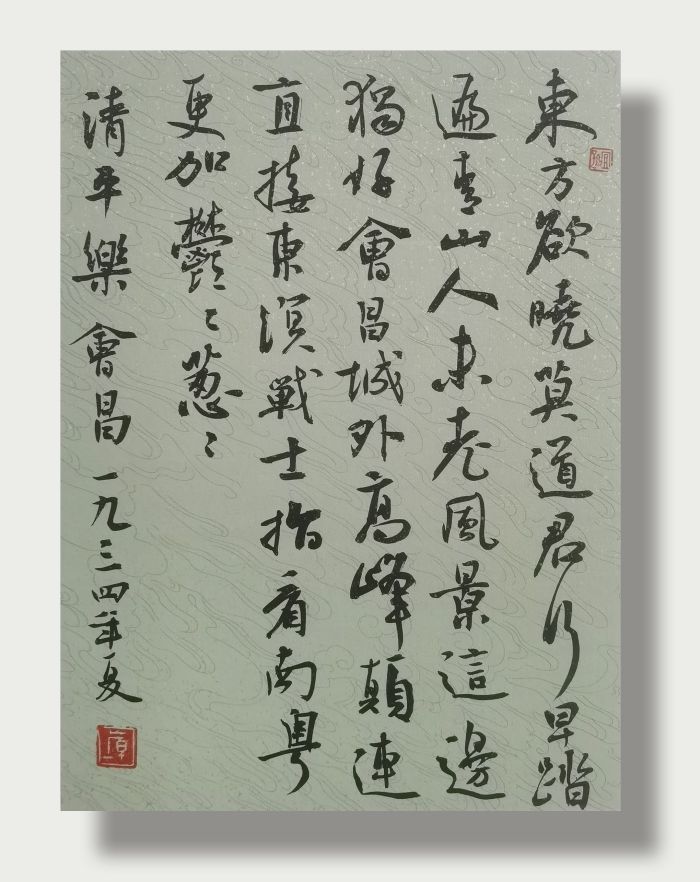 東方欲曉莫道君行早踏
遍青山人未老風景這邊
獨好會昌城外高峰顛連
直接東溟戰士指看南粤
更加鬱〻葱〻
清平樂會昌一九三四年夏